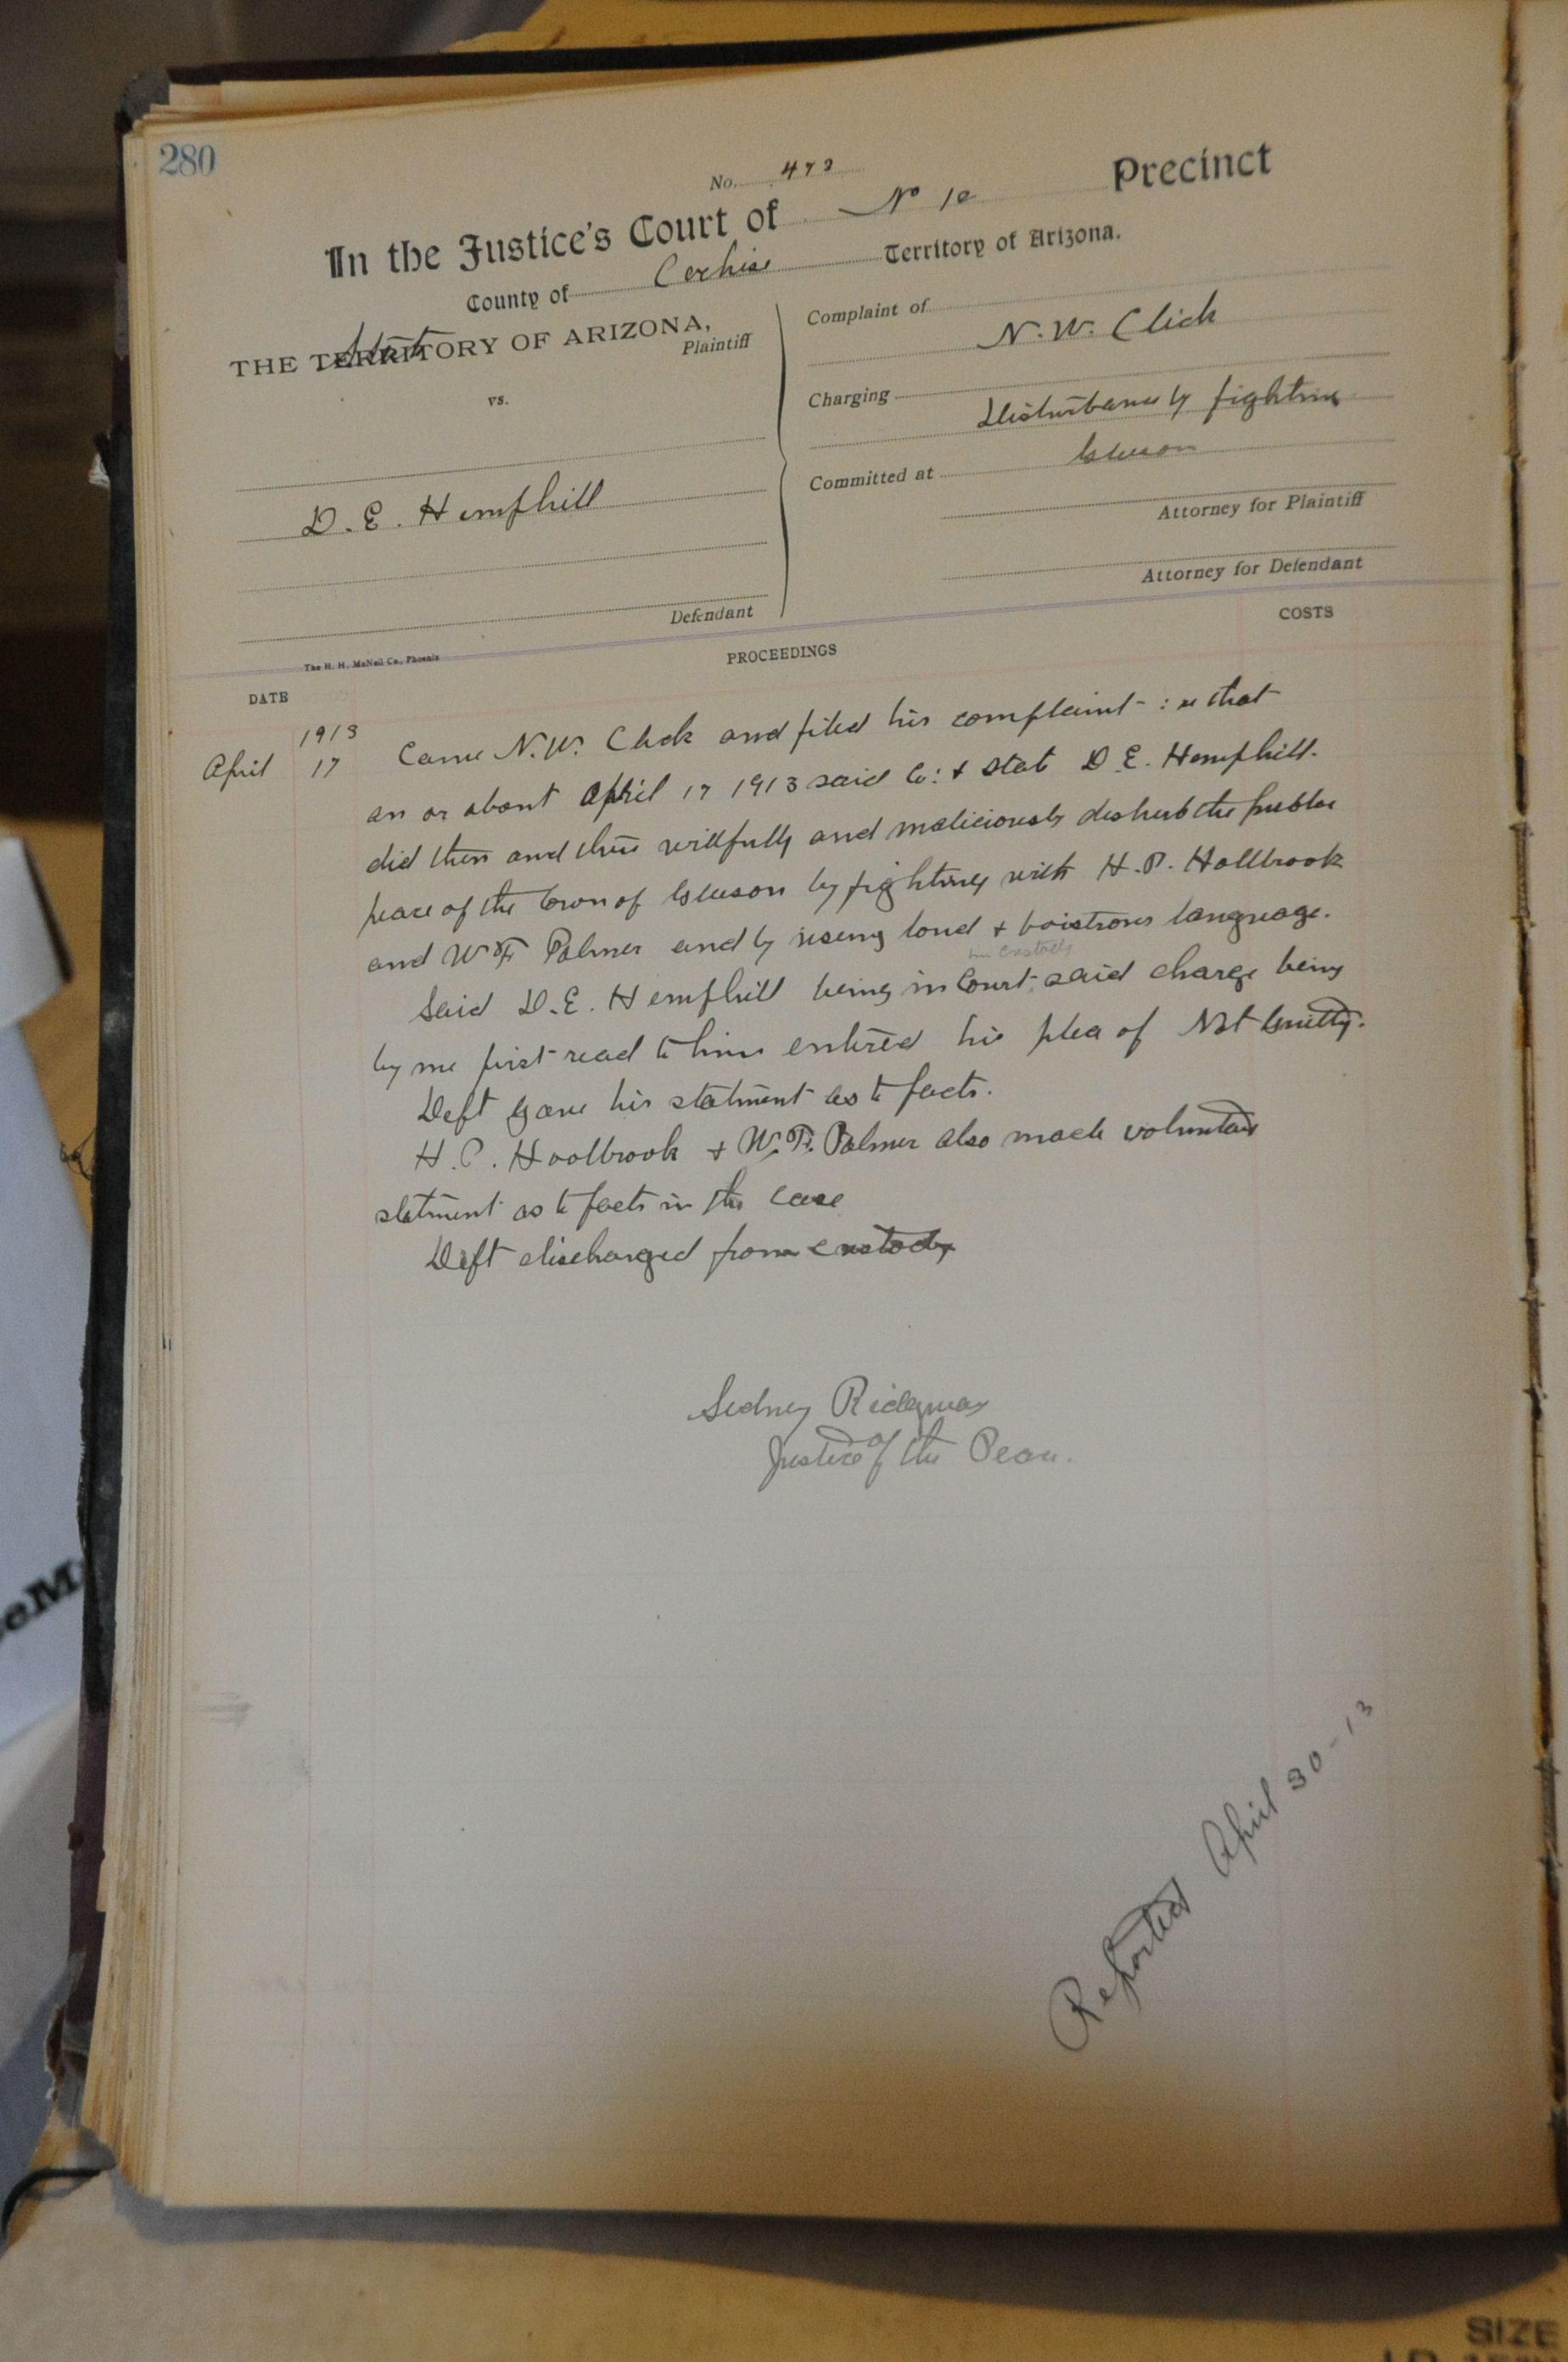 280
No. 473
In the Justice's Court of No 10 Precinct
County of Cochise Territory of Arizona.
THE TERRITORY OF ARIZONA,
State
Plaintiff
vs.
D. E. Hemphill
Defendant
Complaint of
N. W. Click
Charging
Disturbance by fighting
Committed at Gleeson
Attorney for Plaintiff
Attorney for Defendant
The H. H. McNeil Co., Phoenix
PROCEEDINGS
COSTS
DATE
1913
April 17 Came N. W. Click and filed his complaint: that
on or about April 17 1913 said Co: & State D. E. Hemphill.
did then and there willfully and maliciously disturb the public
peace of the town of Gleeson by fighting with H. P. Hollbrook
and W F Palmer and by useing loud & boistrous language.
in custody
Said D. E. Hemphill being in Court said charge being
by me first read to him entered his plea of Not Guilty.
Deft gave his statment as to facts.
H. P. Hoolbrook & W. F. Palmer also made
statment as to facts in the case
Deft discharged from custody
Sidney Ridgway
Justice of the Peace.
Reported April 30-13
eM
SIZE